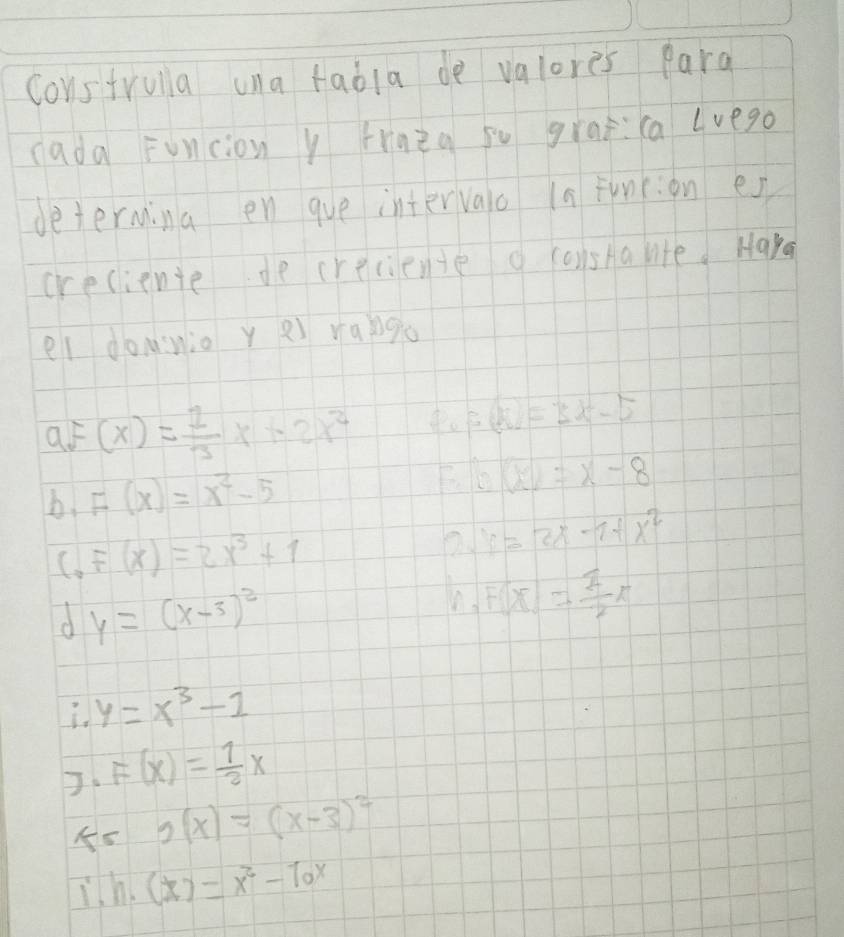 Construlla una tabla de valores para
cada Funcion y traza su grafica Luego
determina en que intervalo la Funcion es
creciente de creciente o constante. Haya
el dominio y el rango
a F(x) = 1/3 x + 2x²
b. F(x) = x² - 5
c. F(x) = 2x³ + 1
d y = (x-3)²
e. F(x) = 3x - 5
F. h(x) = x - 8
g. y = 2x - 1 + x²
h. F(x) = 1/2 x
i. y = x³ - 1
J. F(x) = 1/2 x
K. g(x) = (x-3)²
i. h. (x) = x² - 10x